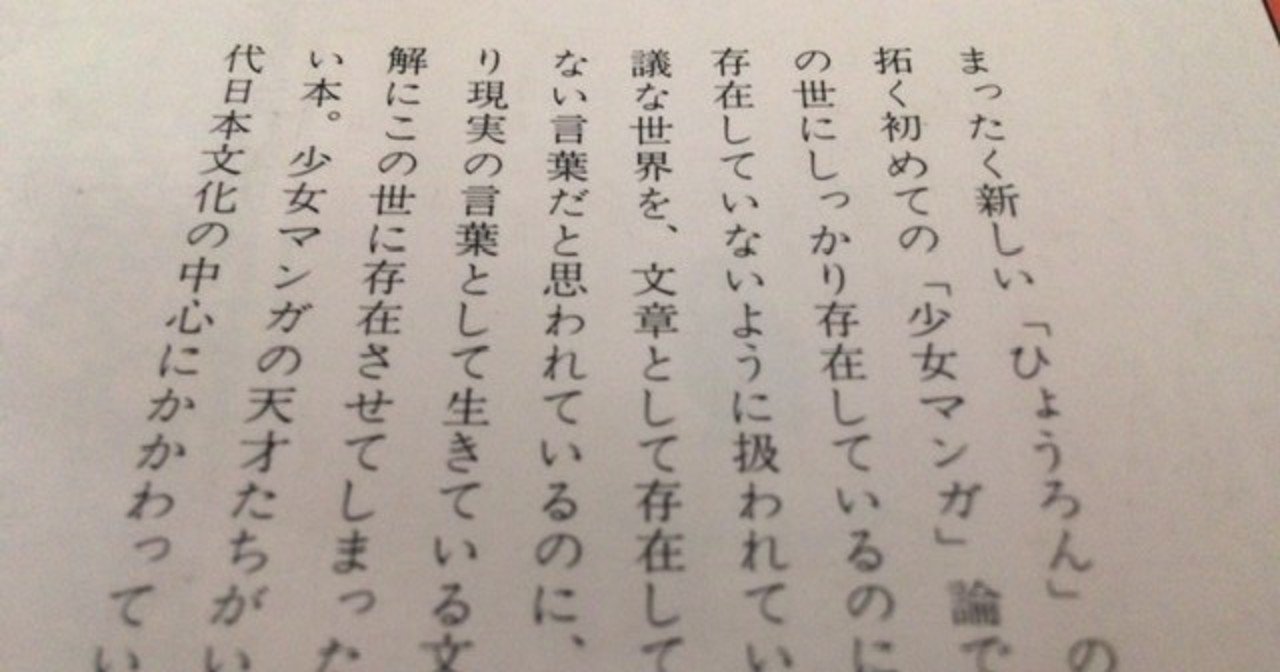 まったく新しい「ひょうろん」の
拓く初めての「少女マンガ」論で
の世にしっかり存在しているのに
存在していないように扱われてい
議な世界を、文章として存在して
ない言葉だと思われているのに、
り現実の言葉として生きている文
解にこの世に存在させてしまった
い本。少女マンガの天才たちがい
代日本文化の中心にかかわってい